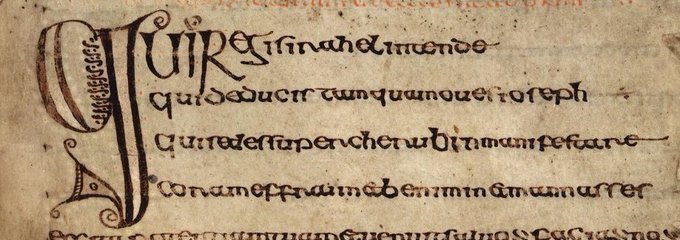 QUI REgis israhel intende
qui deducis tamquam oues ioseph
qui sedes super cherubin manifestare
coram effraim & beniamin & manasses